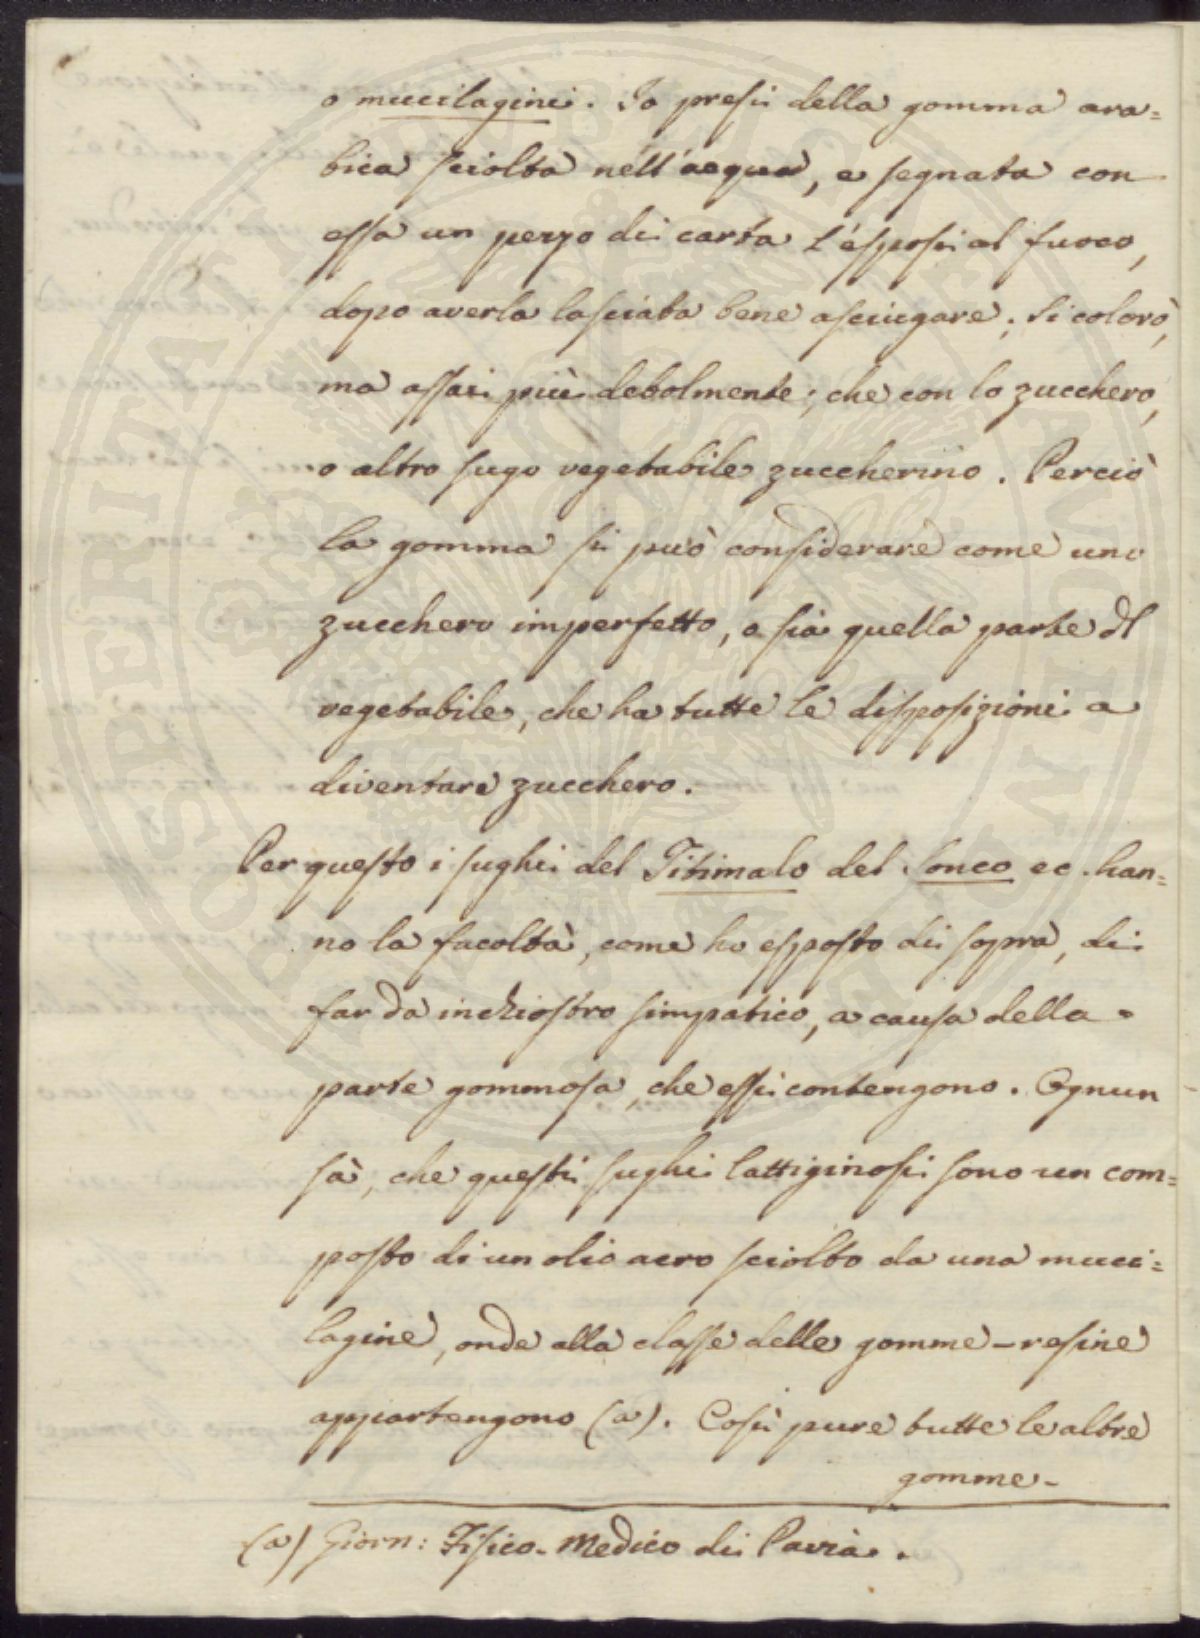 o mucilagini. Io presi della gomma ara=
bica sciolta nell'acqua, e segnata con
essa un pezzo di carta l'esposi al fuoco,
dopo averla lasciata bene asciugare; si colorò,
ma assai più debolmente; che con lo zucchero,
o altro sugo vegetabile zuccherino. Perciò
la gomma si può considerare come uno
zucchero imperfetto, o sia quella parte dl
vegetabile, che ha tutte le disposizioni a
diventare zucchero.
Per questo i sughi del Titimalo del Sonco ec. han=
no la facoltà, come ho esposto di sopra, di
far da inchiostro simpatico, a causa della
parte gommosa, che essi contengono. Ognun
sà, che questi sughi lattiginosi sono un com=
posto di un olio acro sciolto da una muci=
lagine, onde alla classe delle gomme-resine
appartengono (a). Così pure tutte le altre
gomme-
(a) Giorn: Fisico-Medico di Pavia.
PROSPERITATI PUBLICAE AUGENDAE